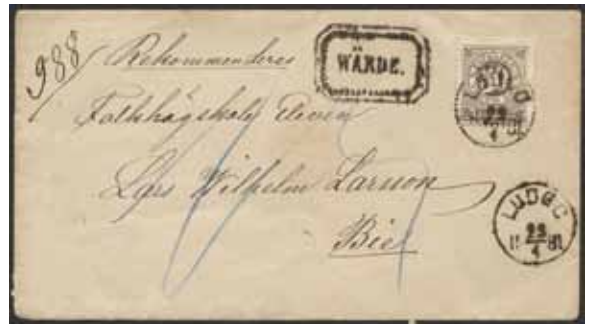 988
Rekommenderas
WÄRDE.
Folkhögskole Eleven
Lars Wilhelm Larsson
Bie
LUDGO
23
4